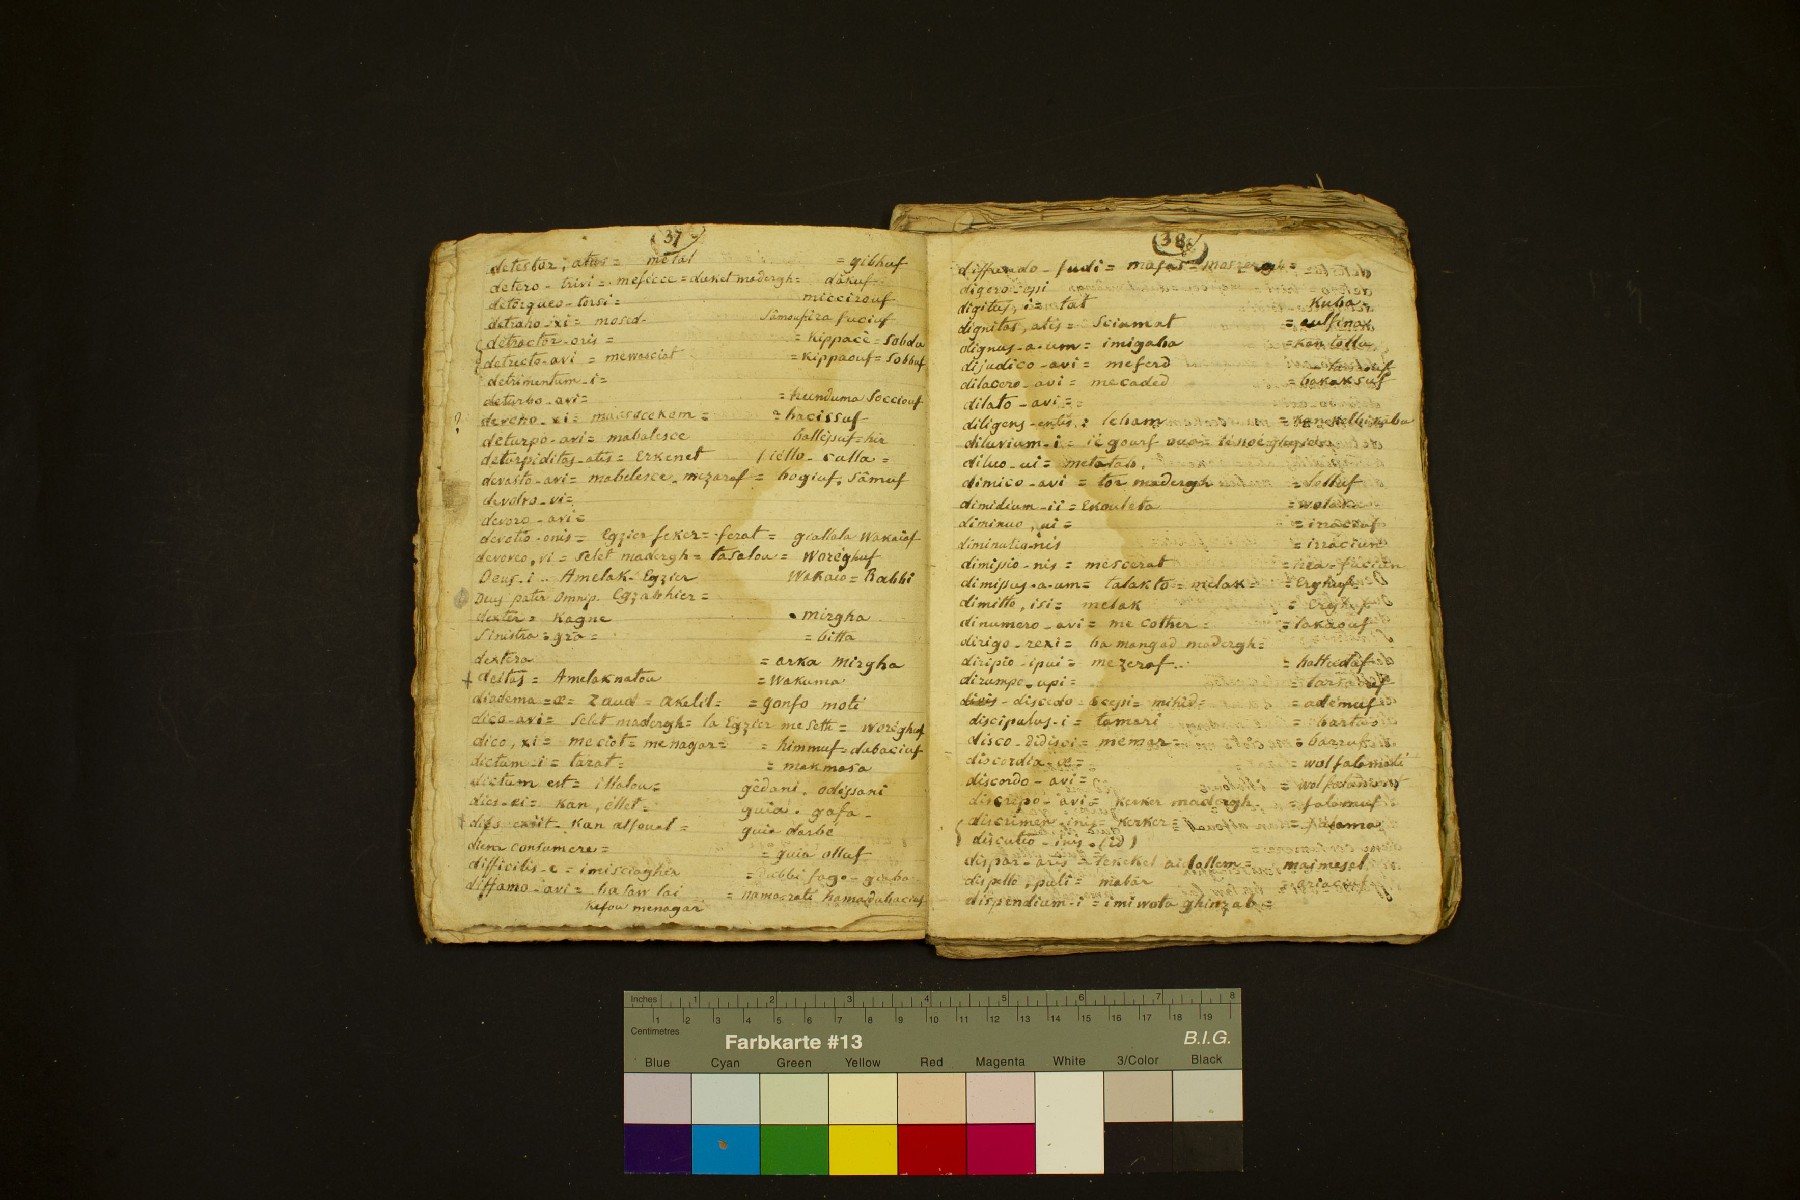 37
detestor, atus = metal = gibhuf
detero - trivi = mefecce = duket madergh = dakuf
detorqueo - torsi = miccirouf
detraho - xi = mosed - Samoufira fuciuf
detractor - oris = = Kippacè = Sobdu
detrecto - avi = mewasciat = Kippaouf = Sobbuf
detrimentum - i =
deturbo - avi = = teunduma Socciouf
? deveho - xi = = bacissuf -
deturpo - avi = mabalesce ballejsuf = hir
deturpiditas - atis = Erkenet / iello - calla =
devasto - avi = mabelesce - mezaraf = bogiuf, Samuf
devolvo - vi =
devoro - avi =
devotio - onis = Egzier feker = ferat = giallala Wakaiof
devoveo, vi = Selet madergh = tasalou = Worèghuf
Deus - i - Amelak - Egzier Wakaio = Rabbi
Deus pater Omnip. Egzabhier =
dexter = Kagne mirgha
Sinistra = gra = = bitta
dextera = arka mirgha
+ deitas = Amelaknatou = Wakuma
diadema - æ = Zaud = akelil = = gonfo moti
dico - avi = Selet madergh = la Egzier me Seth = Worèghuf
dico, xi = meciot = menagar = = himmuf = dubaciuf
dictum - i = tarat = = makmasa
dictum est = ittalou = gèdani . odissani
dies - ei = Kan, ellet = guia . gafa -
dies exiit - Kan alfoual = guia darbè
diem consumere = = guia olluf
difficilis - e = imisciagher = ubbi fago - gaba
diffamo - avi = ba saw lai = nama rati hamadubaciuf
kefou menagar
38
diffundo - fudi = mafas = maszergh =
digero - essi
digitus, i = tat Kuba =
dignitas, atis = Sciumat = aulfina
dignus - a - um = imigaba = Kan tollu
dijudico - avi = meferd
dilacero - avi = mecaded = bakaksuf
dilato - avi = =
diligens - entis : lebam = Kan Kelbi Kabu
diluvium - i =
diluo - ui = metatab,
dimico - avi = tor madergh = lolluf
dimidium - ii = Ekouleta = walaka
diminuo, ui = = irracuuf
diminutio - nis = irraciun
dimissio - nis = mescerat = fucium
dimissus - a - um = talakto = melak = = Erghuf
dimitto, isi = melak = erghuf
dinumero - avi = me cother = = lakaouf
dirigo - rexi = ba mangad madergh =
diripio - ipui = mezeraf .. = battudaf
dirumpo - upi =
discedo - ecessi = mihid = = ademuf
discipulus - i = tamari = bartus
disco - didisci = memar = = barruf
discordia - æ = = wal falamadi
discordo - avi = = wal falamuf
discrepo - avi = kerker madergh = falamuf
discrimen - inis = kerker = = falama
discutio - inis . (id)
dispar - aris = tekekel aidallem = maimesel
dispello, puli = mabar = ariacuuf
dispendium - i = imiwota ghinzab =
Inches 1 2 3 4 5 6 7 8
1 2 3 4 5 6 7 8 9 10 11 12 13 14 15 16 17 18 19
Centimetres
Farbkarte #13 B.I.G.
Blue Cyan Green Yellow Red Magenta White 3/Color Black